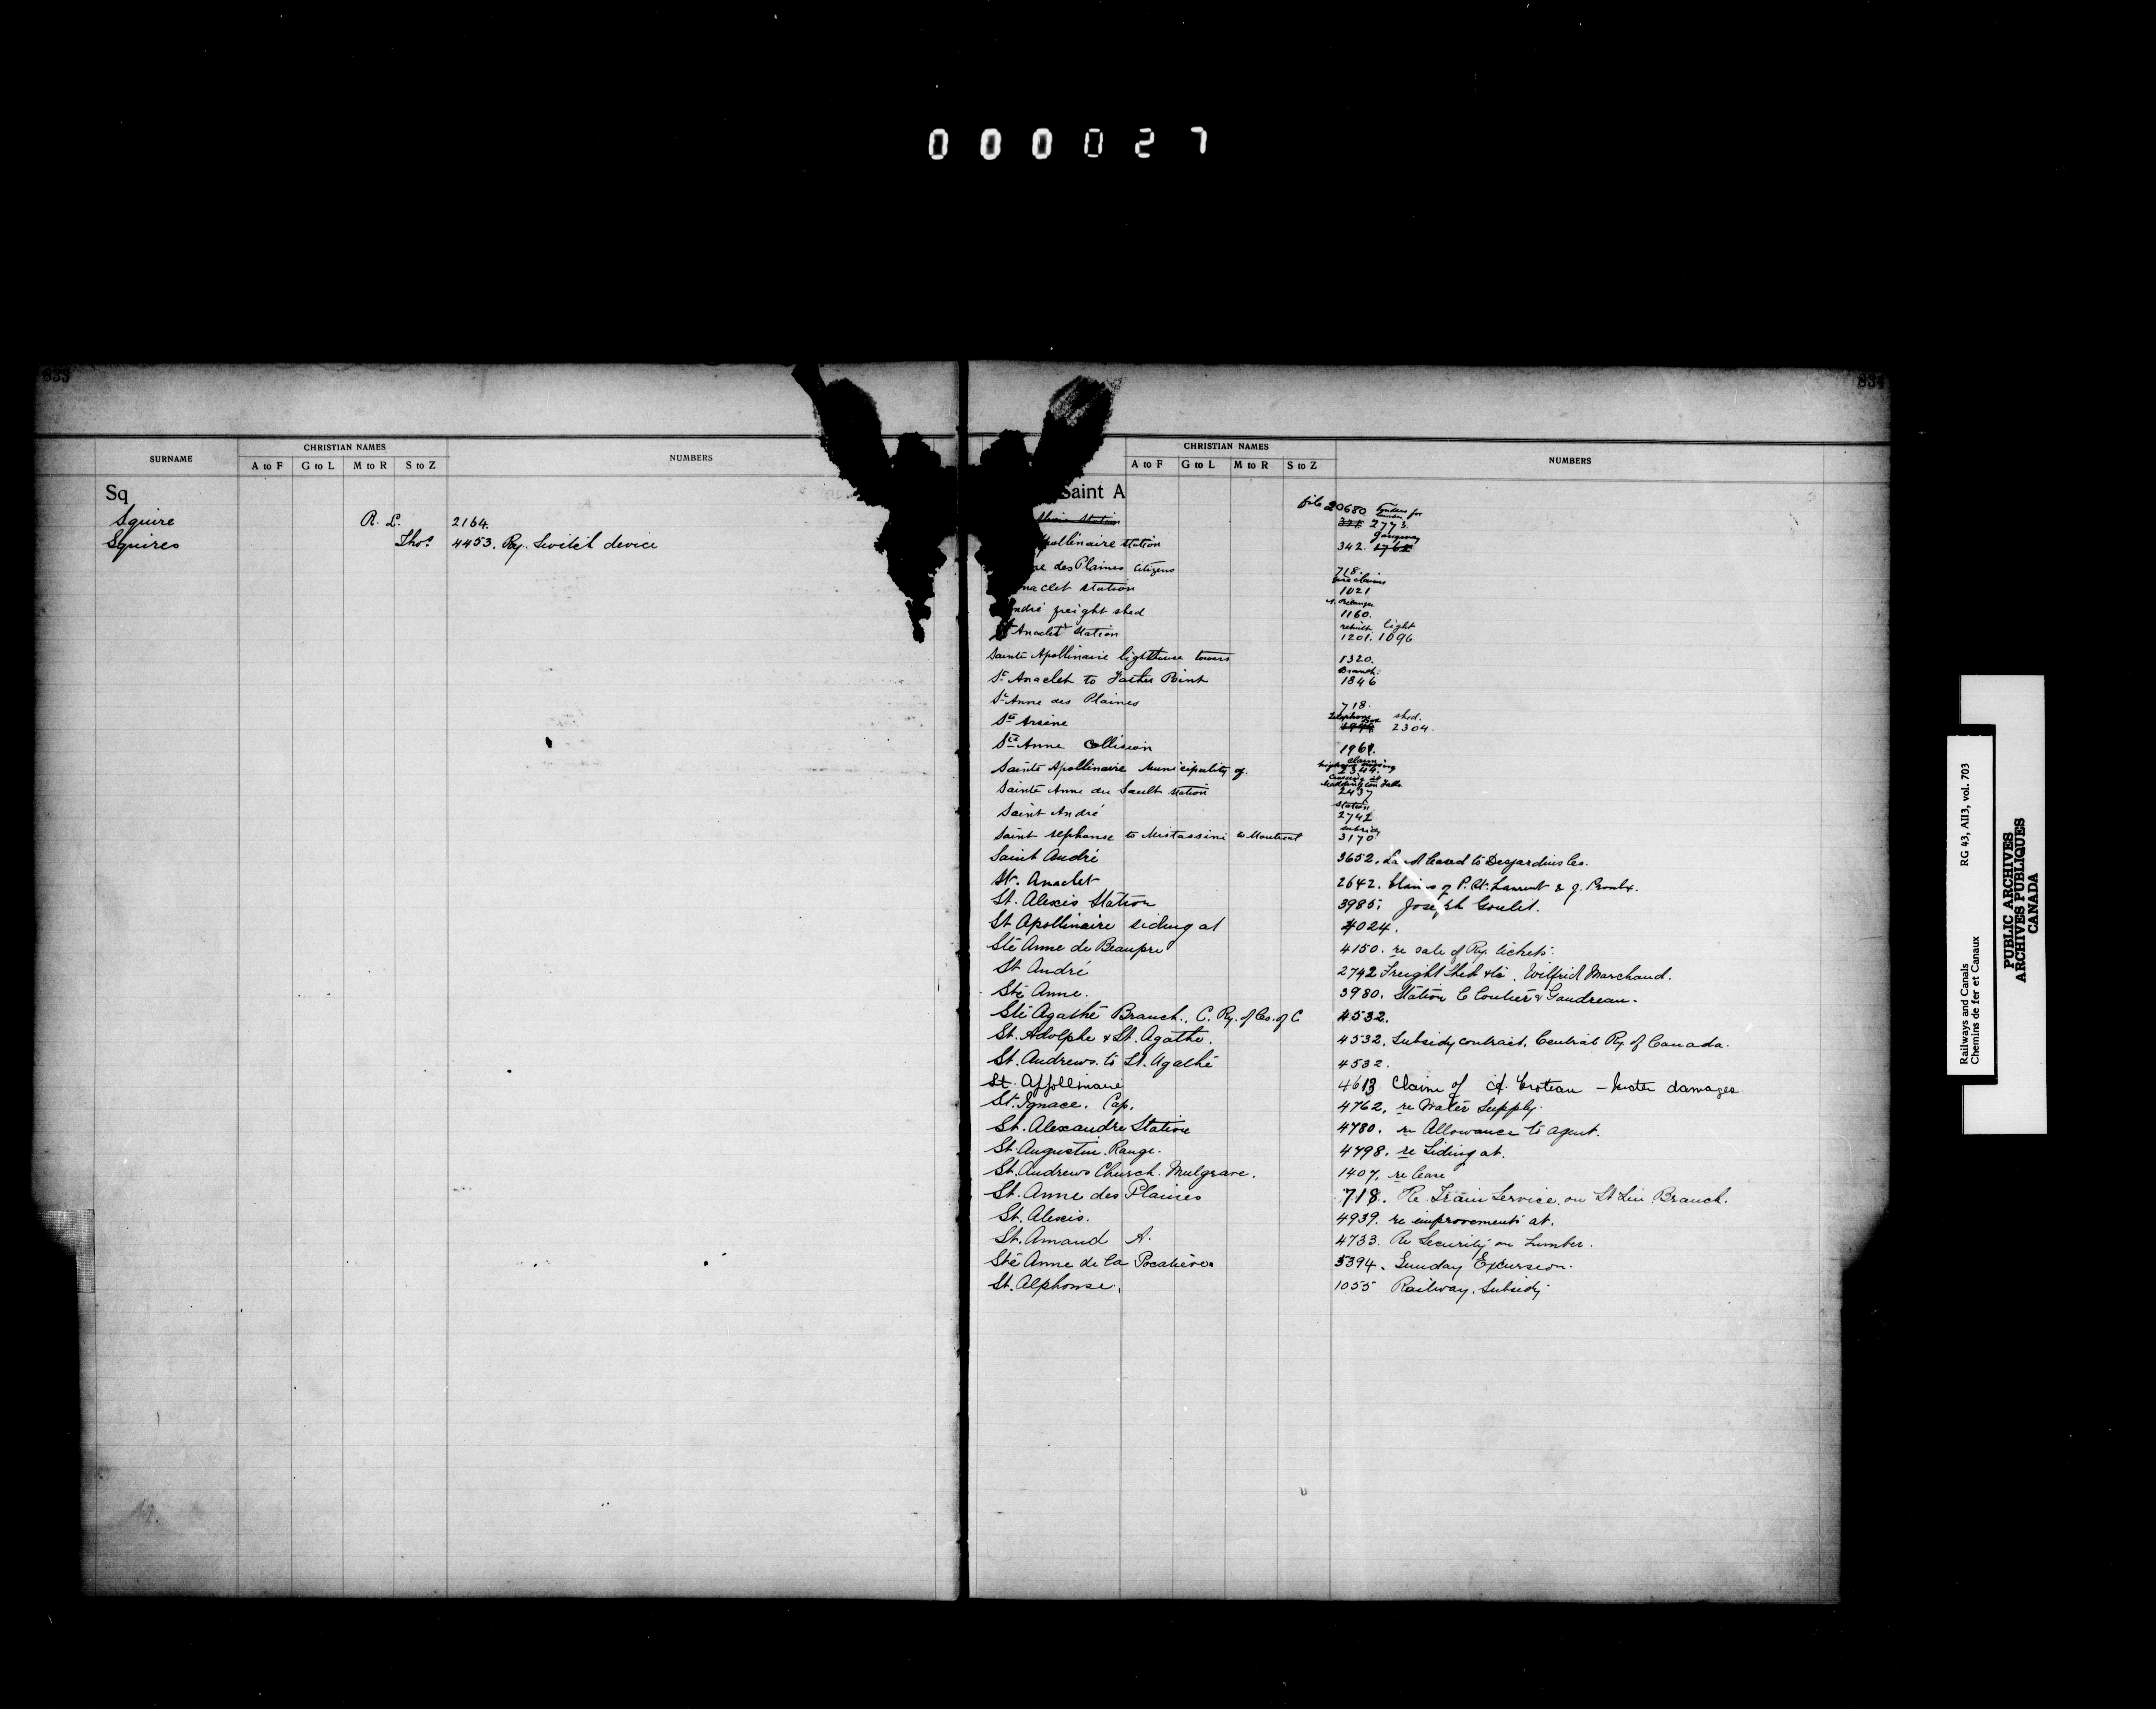 000027
833
SURNAME CHRISTIAN NAMES NUMBERS
A to F G to L M to R S to Z
Sq
Squire R. L. 2164.
Squires Thos. 4453. Ry. Switch device
834
CHRISTIAN NAMES NUMBERS
A to F G to L M to R S to Z
Saint A
file 20680 Tenders for
Station 2773.
pollinaire station 342.
re des Plaines Citizens 718.
naclet station 1021
ndré freight shed 1160.
St Anaclet Station 1201. light 1096
Sainte Apollinaire lighthouse towers 1320.
St. Anaclet to Father Point Branch. 1846
St Anne des Plaines 718.
Ste Arsène shed. 2304.
Ste Anne Collision 1961.
Sainte Apollinaire Municipality of. highway crossing 2344.
Sainte Anne du Sault station Crossing at Maddington Falls 2437
Saint André Station 2742
Saint Alphonse to Mistassini & Montreal subsidy 3170
Saint André 3652. Land leased to Desjardins Co.
St. Anaclet 2642. Claims of P. St. Laurent & J. Proulx.
St. Alexis Station 3985. Joseph Goulet.
St Apollinaire siding at 4024.
Ste Anne de Beaupre 4150. re sale of Ry. tickets.
St André 2742 Freight Shed &c. Wilfrid Marchand.
Ste Anne. 3980. Station C Coutier & Gaudreau.
Ste Agathe Branch. C. Ry. of Co. of C 4532.
St. Adolphe & St. Agathe. 4532. Subsidy contract. Central Ry of Canada.
St. Andrews. to St. Agathe 4532.
St. Appollinare 4613 Claim of A. Croteau – Water damages
St. Ignace. Cap. 4762. re Water Supply.
St. Alexandre Station 4780. re Allowance to agent.
St. Augustin. Range. 4798. re Siding at.
St. Andrews Church. Mulgrave. 1407. re lease
St. Anne des Plaines 718. Re Train Service on St Lin Branch.
St. Alexis. 4939. re improvements at.
St. Amand A. 4733. Re Security on Lumber.
Ste Anne de la Pocatière. 5394. Sunday Excursion.
St. Alphonse. 1055 Railway. Subsidy
Railways and Canals RG 43, AII3, vol. 703
Chemins de fer et Canaux
PUBLIC ARCHIVES
ARCHIVES PUBLIQUES
CANADA